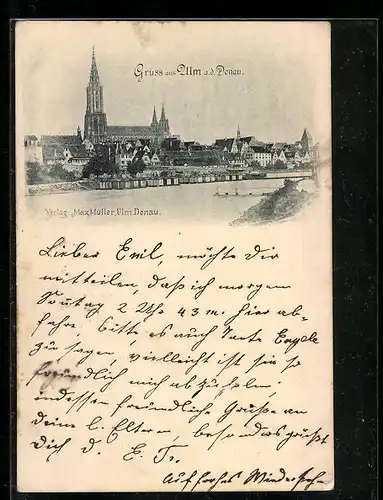 Gruss aus Ulm a.d. Donau.
Verlag Max Müller, Ulm Donau.
Lieber Emil, möchte Dir
mitteilen, daß ich morgen
Sontag 2 Uhr 43 m. hier ab-
fahre. bitte es auch Tante Engele
zu sagen, vielleicht ist sie so
freundlich mich abzuholen.
indessen freundliche Grüße an
deine l. Eltern, besonders grüßt
Dich d. E. Tr.
Auf frohes Wiedersehn